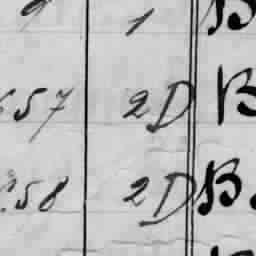 1
57 2D B
58 2D B